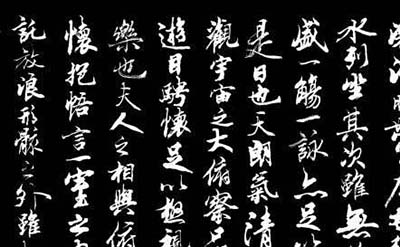 水列坐其次雖無
盛一觴一詠亦足
是日也天朗氣清
觀宇宙之大俯察品
遊目騁懷足以極視
樂也夫人之相與俯
懷抱悟言一室之
託放浪形骸之外雖